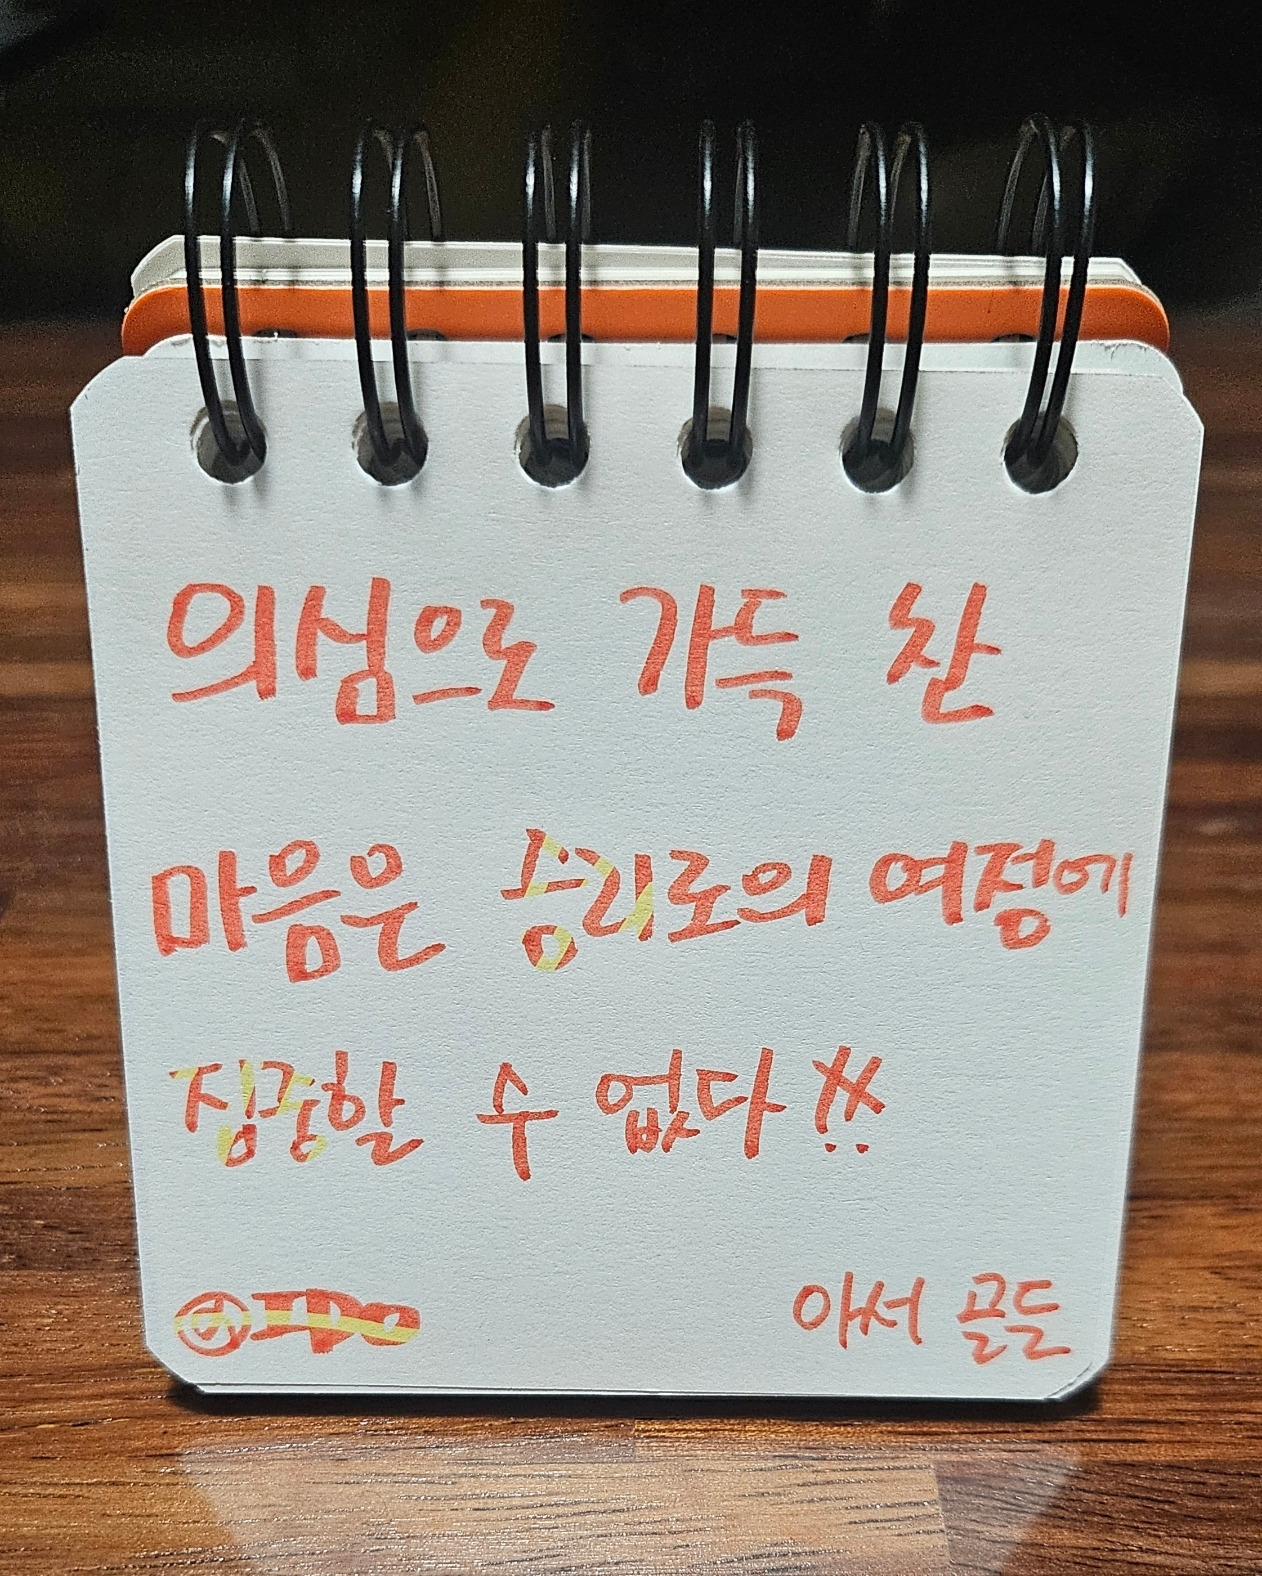 의심으로 가득 찬
마음은 승리로의 여정에
집중할 수 없다!!
아서 골든